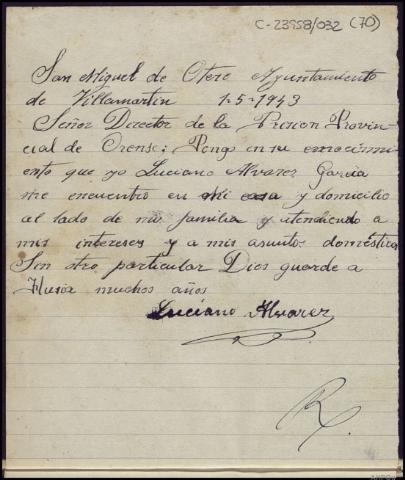 C-23958/032 (70)
San Miguel de Otero Ayuntamiento
de Villamartin 1-5-1943
Señor Director de la Prision Provin-
cial de Orense: Pongo en su conocimi
ento que yo Luciano Alvarez Garcia
me encuentro en mi casa y domicilio
al lado de mis familia y atendiendo a
mis intereses y a mis asuntos domésticos
Sin otro, particular Dios guarde a
Husia muchos años
Luciano Alvarez
R